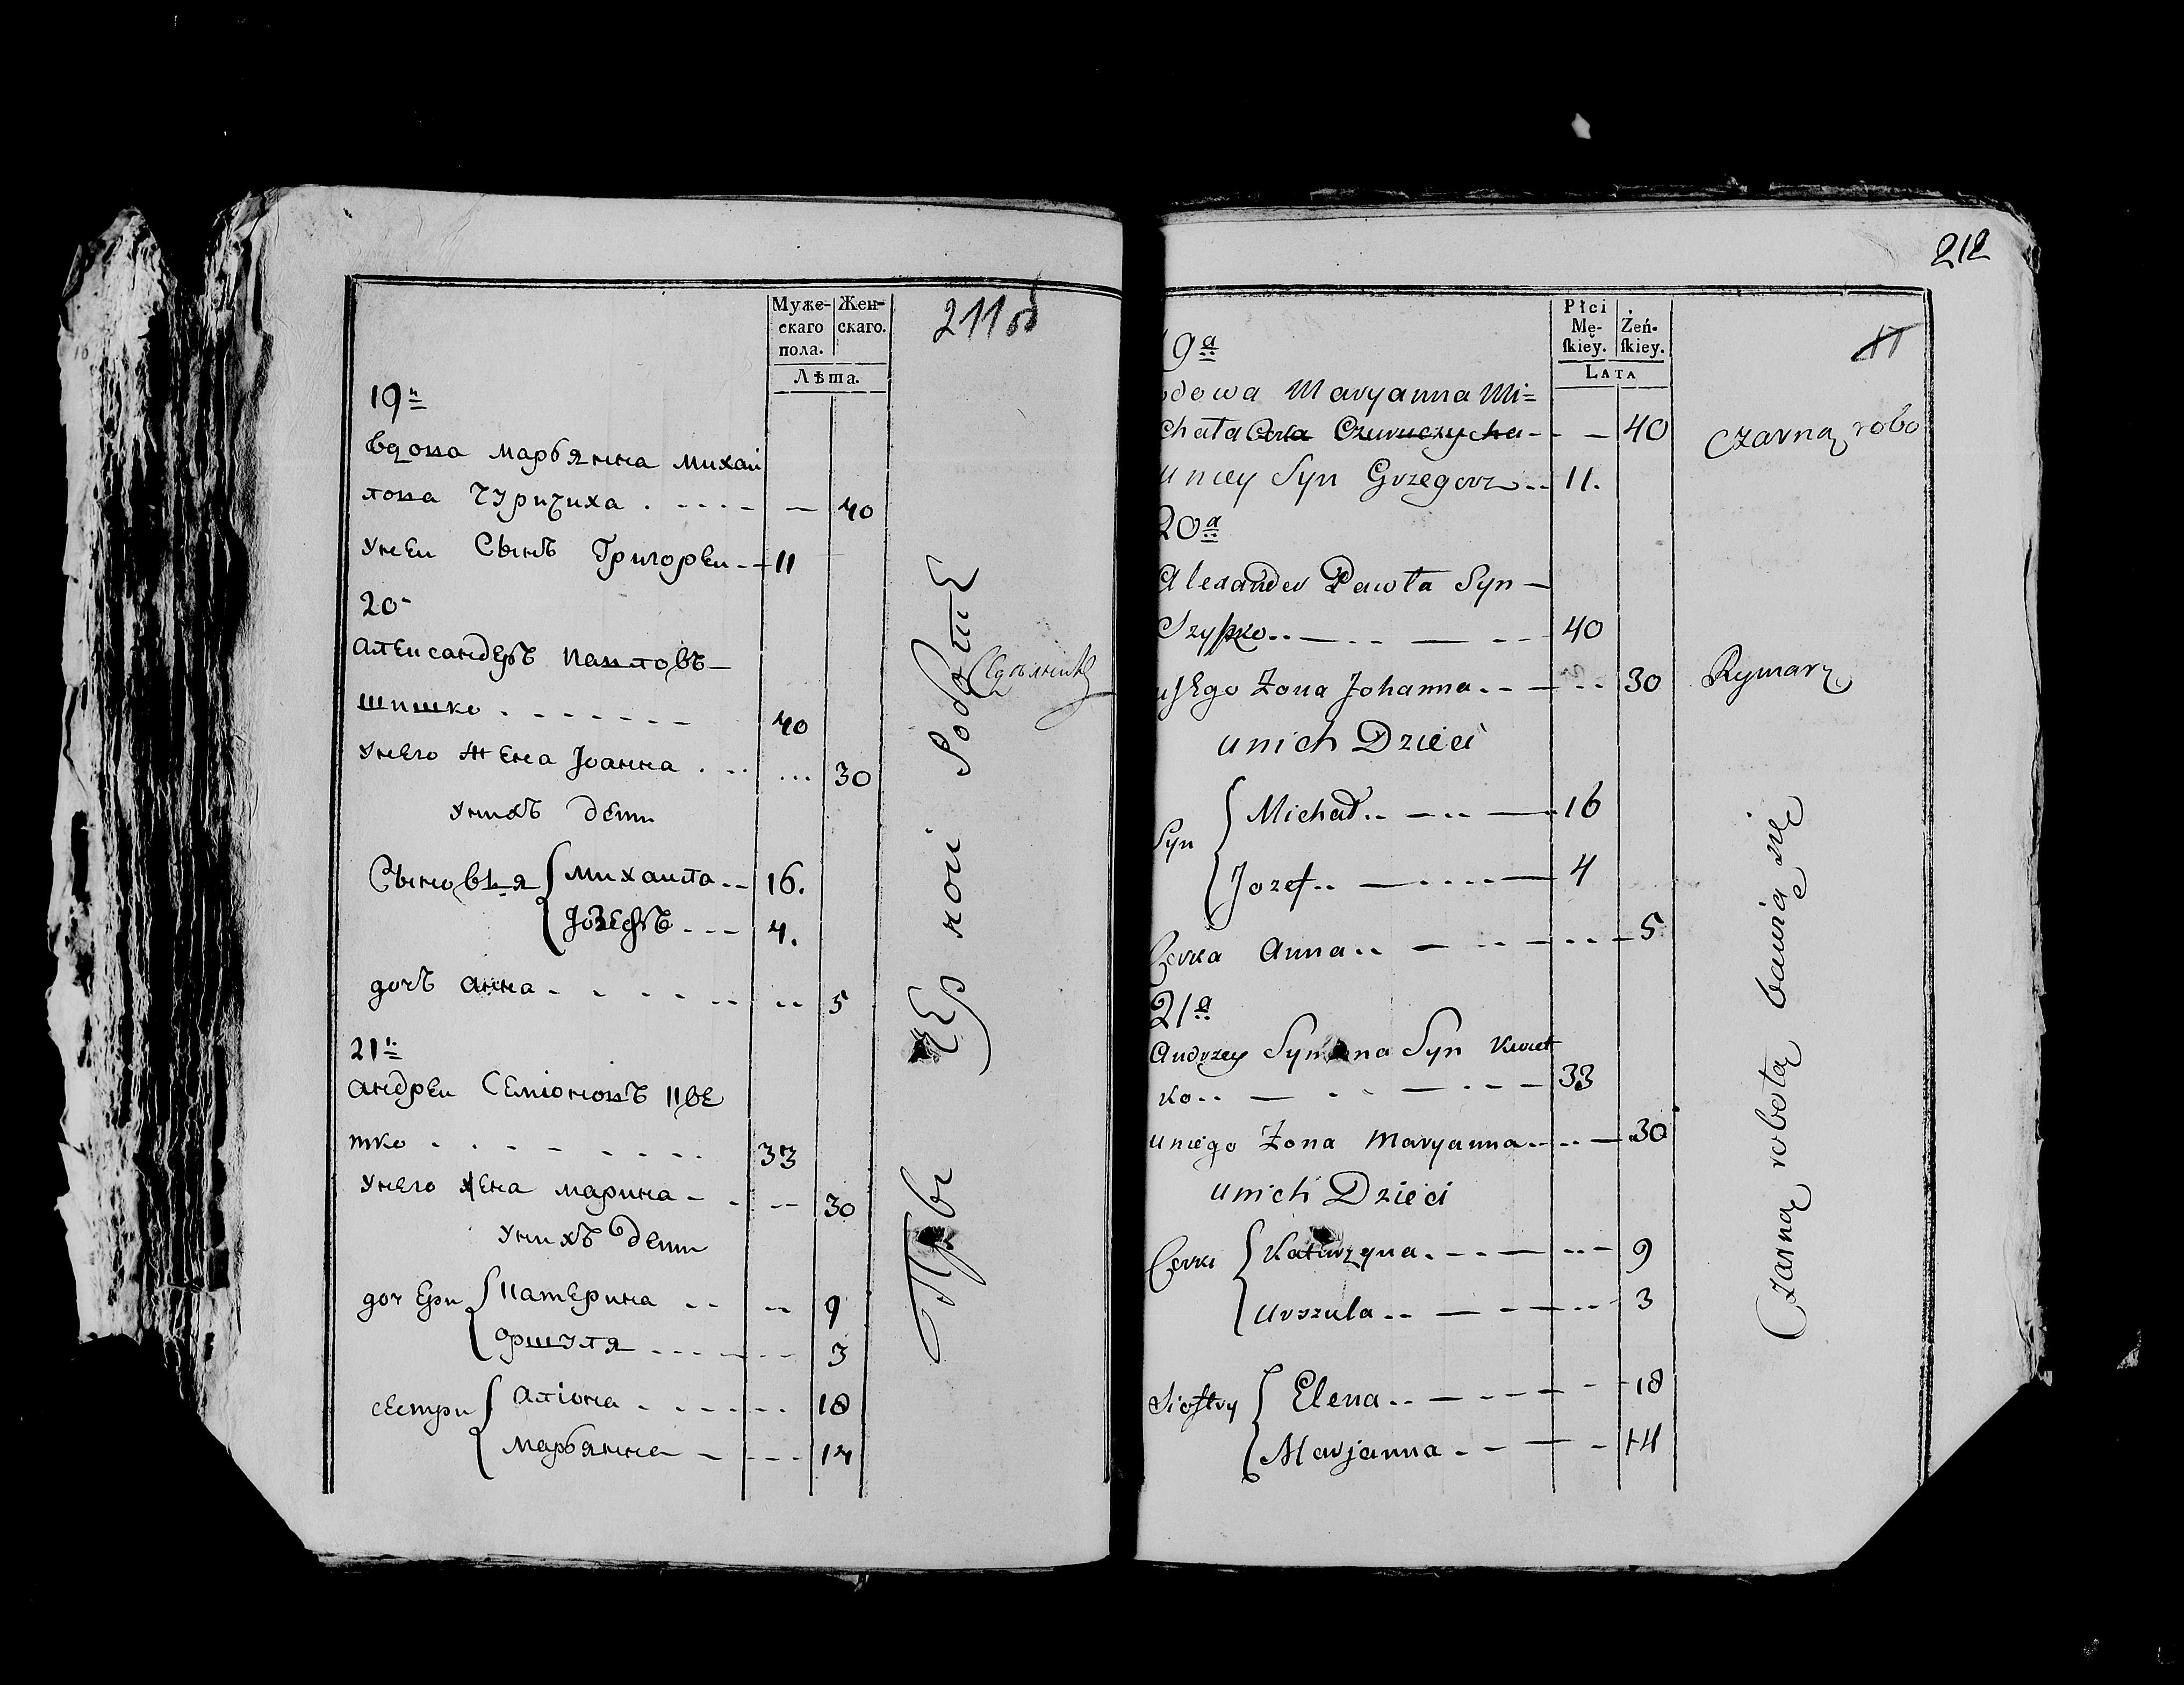 Муже-
скаго
пола.
Жен-
скаго.
Лѣта.
211об
19
вдова марьянна михаи
лова Чуричиха
Унеи Сынъ Григореи 11
40
20
александеръ павловъ
шишко 40
Унего жена Іоанна 30
Унихъ дети
Сыновья
михаила 16.
Іозефъ 4.
дочъ анна 5
21
андреи Семіоновъ Кве
тко 33
Унего жена марина 30
Унихъ дети
дочери
Катерина 9
оршуля 3
сестри
аліона 18
марьянна 14
212
Płci
Mę-
skiey.
Żeń-
skiey.
LATA
17
9a
dowa Maryanna Mi=
chała Czuruczycha 40
Czarną robo
uniey Syn Grzegorz 11.
20a
Alexander Pawła Syn
Szyszko 40
Jego Żona Johanna 30
Rymarz
unich Dzieci
Syn
Michał 16
Jozef 4
Corka Anna 5
21a
Andrzey Symona Syn Kwet
ko 33
uniego Żona Maryanna 30
unich Dzieci
Corki
Katarzyna 9
Urszula 3
Siostry
Elena 18
Marjanna 14
Czarną robotą bawią się